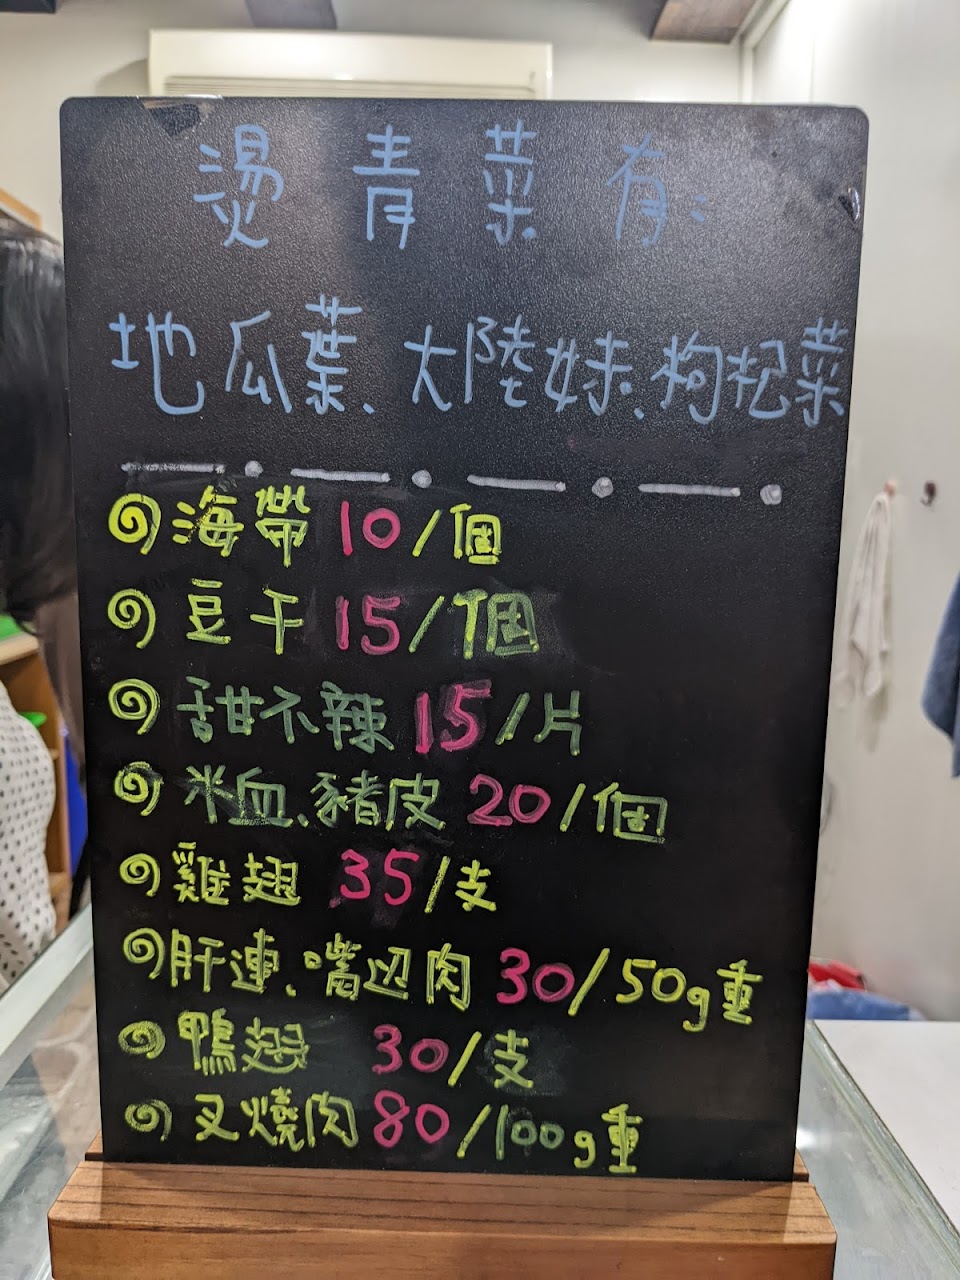 燙青菜有:
地瓜葉、大陸妹、枸杞菜
海帶 10/個
豆干 15/個
甜不辣 15/片
米血、豬皮 20/個
雞翅 35/支
肝連、嘴边肉 30/50g重
鴨翅 30/支
叉燒肉 80/100g重